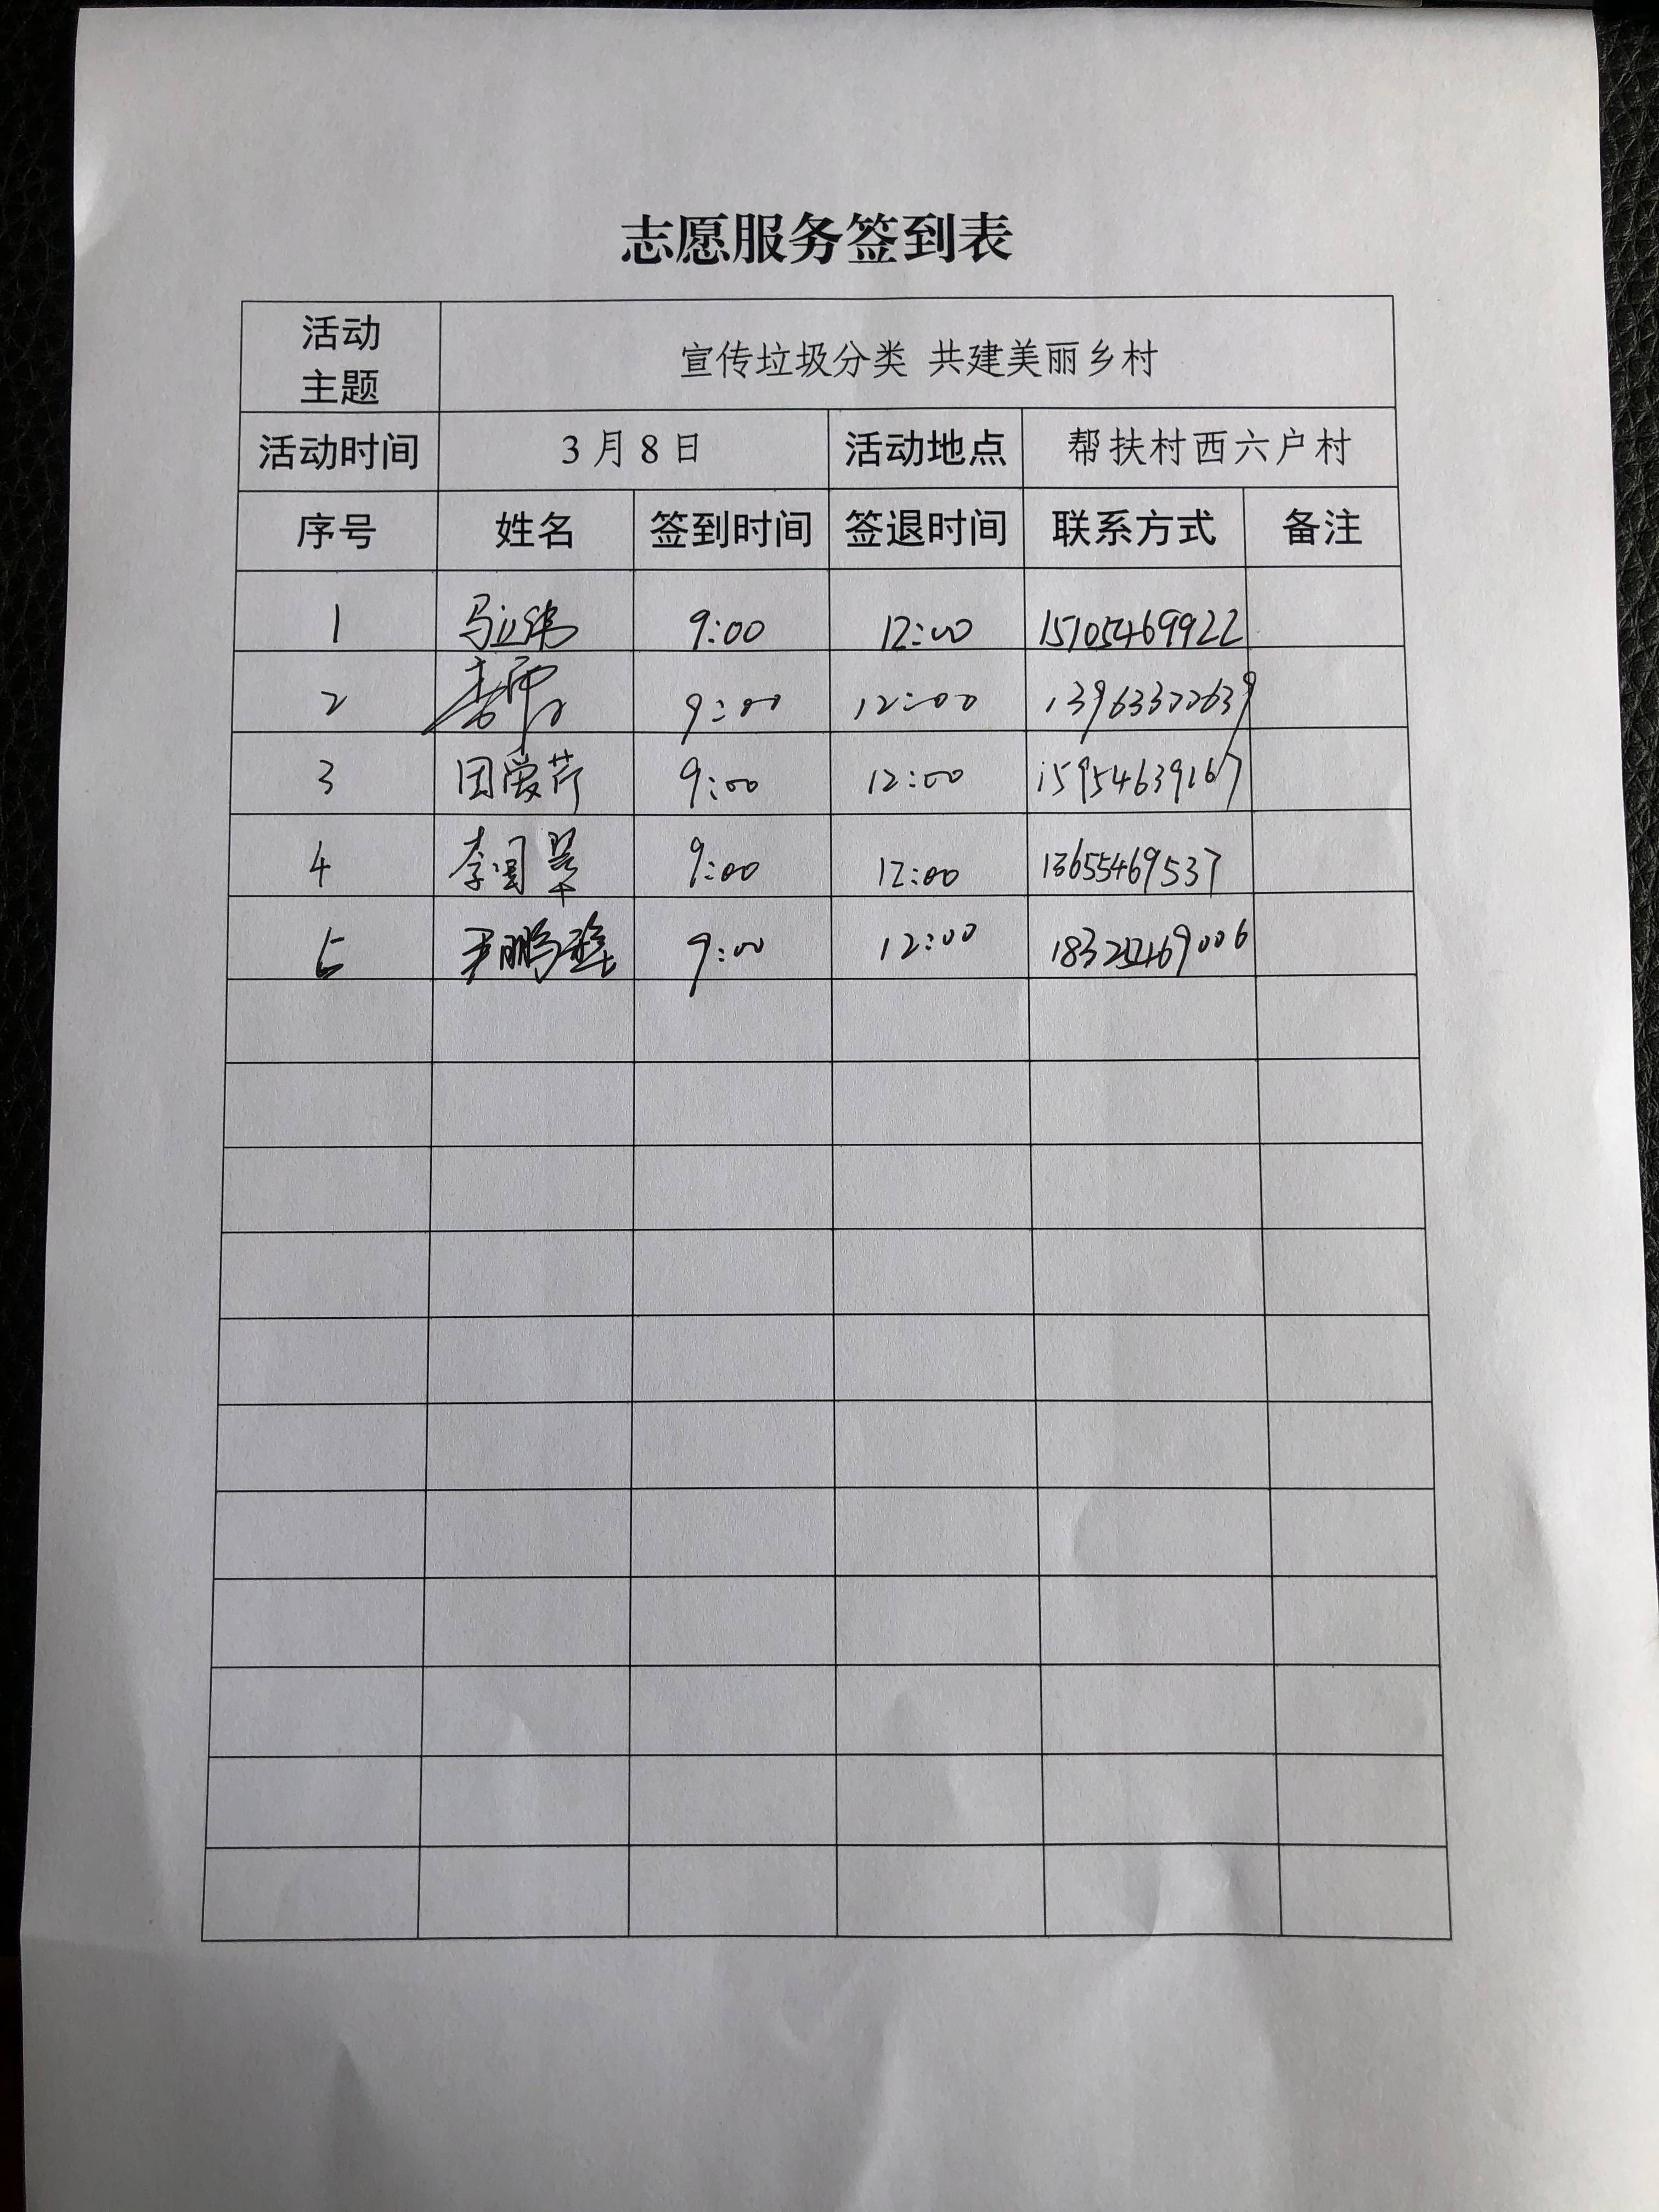 志愿服务签到表
活动主题 宣传垃圾分类 共建美丽乡村
活动时间 3月8日 活动地点 帮扶村西六户村
序号 姓名 签到时间 签退时间 联系方式 备注
1 马立伟 9:00 12:00 15105469922
2 9:00 12:00 13963322639
3 田爱芹 9:00 12:00 15954639167
4 李国 9:00 12:00 13655469537
5 鹏 9:00 12:00 18325469006